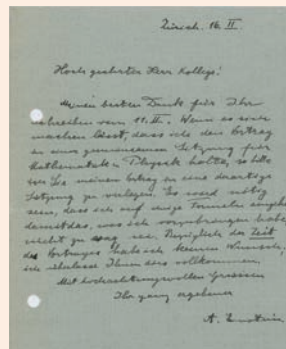 Zürich. 16. II.
Hoch geehrter Herr Kollege!
Meinen besten Dank für Ihr
schreiben vom 11. II. Wenn es sich
machen lässt, dass ich den Vortrag
in einer gemeinsamen Sitzung für
Mathematik u. Physik halte, so bitte
ich Sie meinen Vortrag in eine derartige
Sitzung zu verlegen. Es wird nötig
sein, dass ich auf einige Formeln
damit das, was ich vorzubringen habe,
nicht zu sei. Bezüglich der Zeit
des Vortrages habe ich keinen Wunsch,
ich überlasse Ihnen dies vollkommen.
Mit hochachtungsvollen Grüssen
Ihr ganz ergebener
A. Einstein.